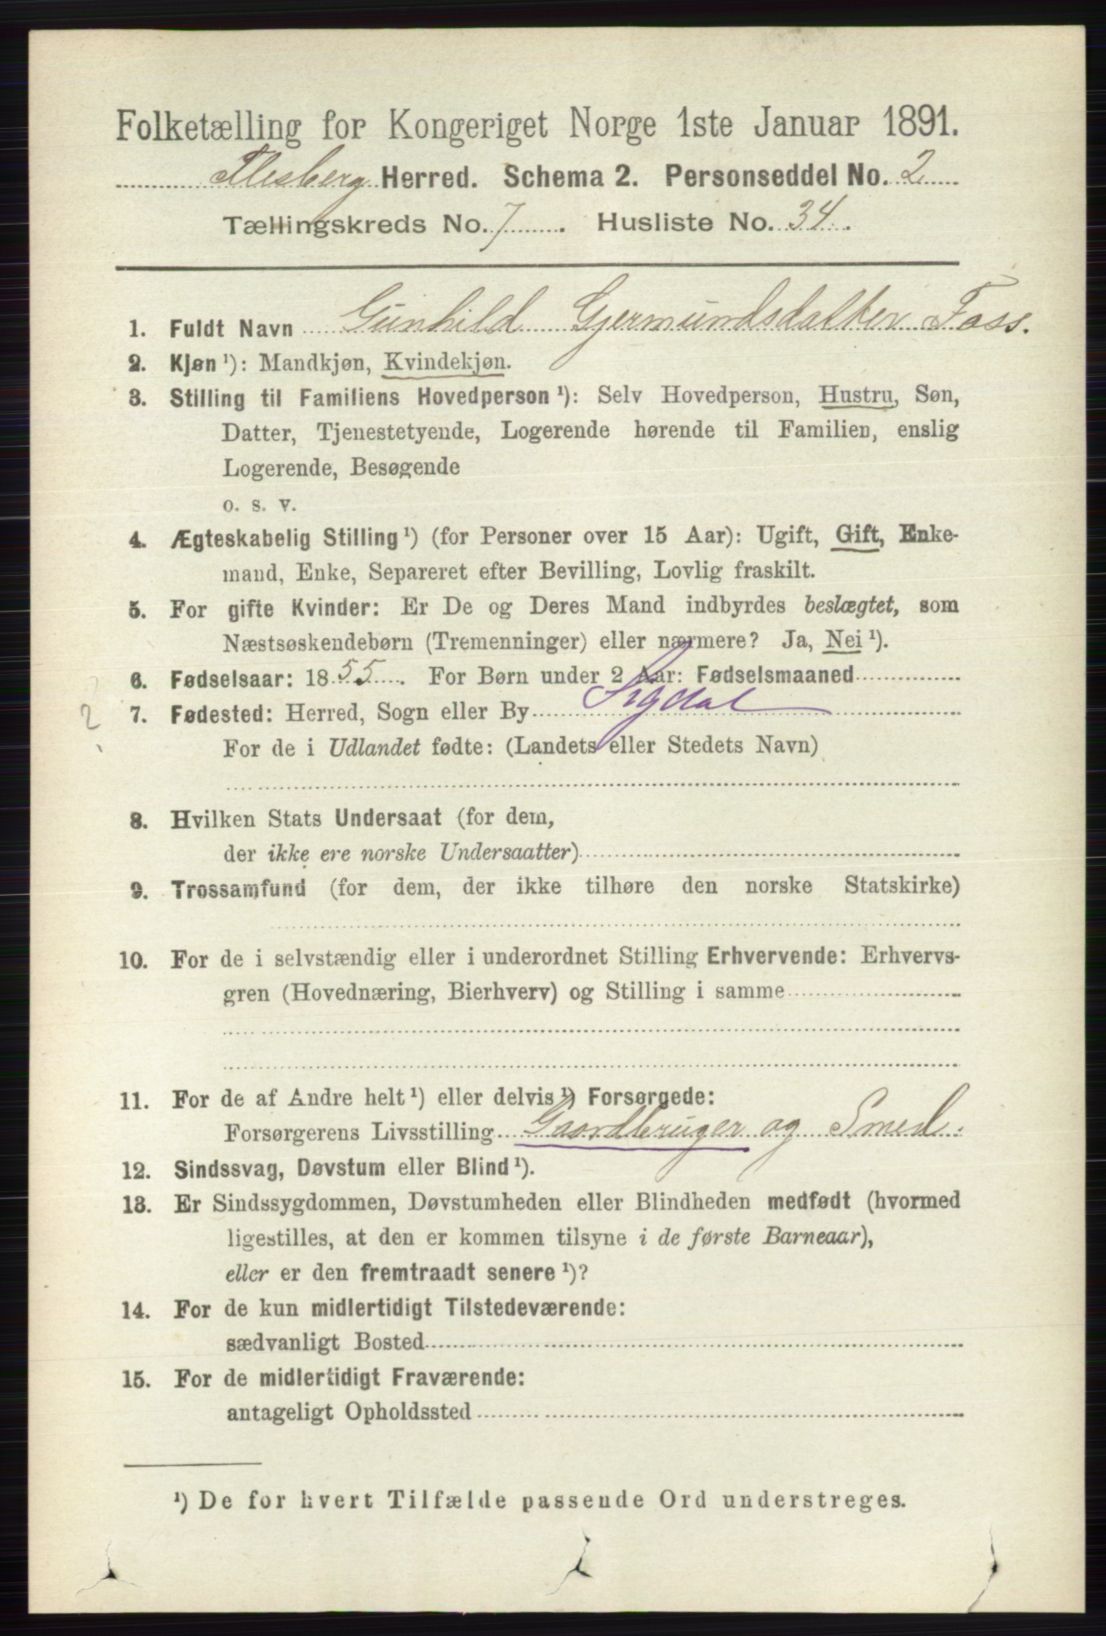 Folketælling for Kongeriget Norge 1ste Januar 1891.
Flesberg Herred. Schema 2. Personseddel No. 2
Tællingskreds No. 7. Husliste No. 34.
1. Fuldt Navn Gunhild Gjermundsdatter Foss.
2. Kjøn ¹): Mandkjøn, Kvindekjøn.
3. Stilling til Familiens Hovedperson ¹): Selv Hovedperson, Hustru, Søn,
Datter, Tjenestetyende, Logerende hørende til Familien, enslig
Logerende, Besøgende
o. s. v.
4. Ægteskabelig Stilling ¹) (for Personer over 15 Aar): Ugift, Gift, Enke-
mand, Enke, Separeret efter Bevilling, Lovlig fraskilt.
5. For gifte Kvinder: Er De og Deres Mand indbyrdes beslægtet, som
Næstsøskendebørn (Tremenninger) eller nærmere? Ja, Nei ¹).
6. Fødselsaar: 1855. For Børn under 2 Aar: Fødselsmaaned
2 7. Fødested: Herred, Sogn eller By Sigdal
For de i Udlandet fødte: (Landets eller Stedets Navn)
8. Hvilken Stats Undersaat (for dem,
der ikke ere norske Undersaatter)
9. Trossamfund (for dem, der ikke tilhøre den norske Statskirke)
10. For de i selvstændig eller i underordnet Stilling Erhvervende: Erhvervs-
gren (Hovednæring, Bierhverv) og Stilling i samme
11. For de af Andre helt ¹) eller delvis ¹) Forsørgede:
Forsørgerens Livsstilling Gaardbruger og Smed.
12. Sindssvag, Døvstum eller Blind ¹).
13. Er Sindssygdommen, Døvstumheden eller Blindheden medfødt (hvormed
ligestilles, at den er kommen tilsyne i de første Barneaar),
eller er den fremtraadt senere ¹)?
14. For de kun midlertidigt Tilstedeværende:
sædvanligt Bosted
15. For de midlertidigt Fraværende:
antageligt Opholdssted
¹) De for hvert Tilfælde passende Ord understreges.